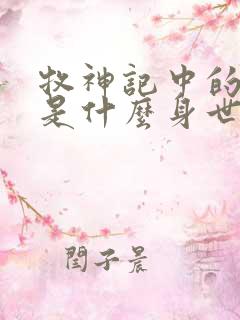 牧神記中的
是什麼身世
閆子晨